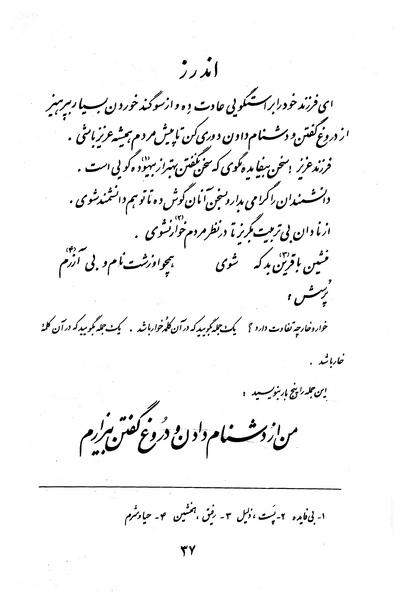 اندرز
ای فرزند خود را براستگویی عادت ده و از سوگند خوردن بسیار بپرهیز
از دروغ گفتن و دشنام دادن دوری کن تا پیش مردم همیشه عزیز باشی .
فرزند عزیز ! سخن بیفایده مگوی که سخن نگفتن بهتر از بیهوده(۱) گویی است .
دانشمندان را گرامی بدار و بسخن آنان گوش ده تا تو هم دانشمند شوی .
از نادان بی تربیت بگریز تا در نظر مردم خوار(۲) نشوی .
منشین با قرین(۳) بد که شوی همچو او زشت نام و بی آزرم(۴)
پُرسش :
خوار و خار چه تفاوت دارد ؟ یک جمله بگویید که در آن کلمهٔ خوار باشد . یک جمله بگویید که در آن کلمهٔ
خار باشد .
این جمله را پنج بار بنویسید :
من از دشنام دادن و دروغ گفتن بیزارم
۱- بی فایده ۲- پَست ، ذلیل ۳- رفیق ، همنشین ۴- حیا و شرم
۳۷